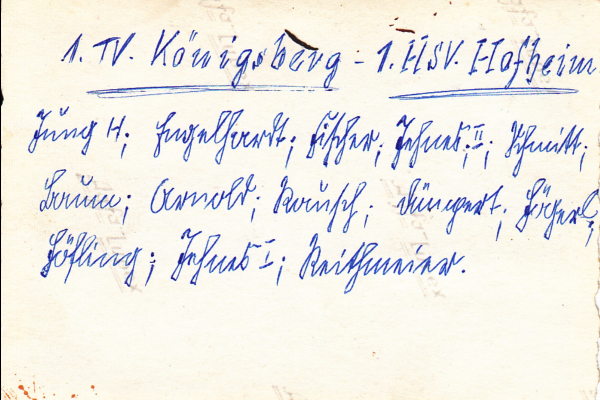 1. TV. Königsberg - 1. HSV. Hofheim
Jung H; Engelhardt; Fischer; Jehnes; II; Schmitt;
Baum; Arnold; Rausch; Düngert; Högerl;
Höfling; Jehnes I; Reithmeier.